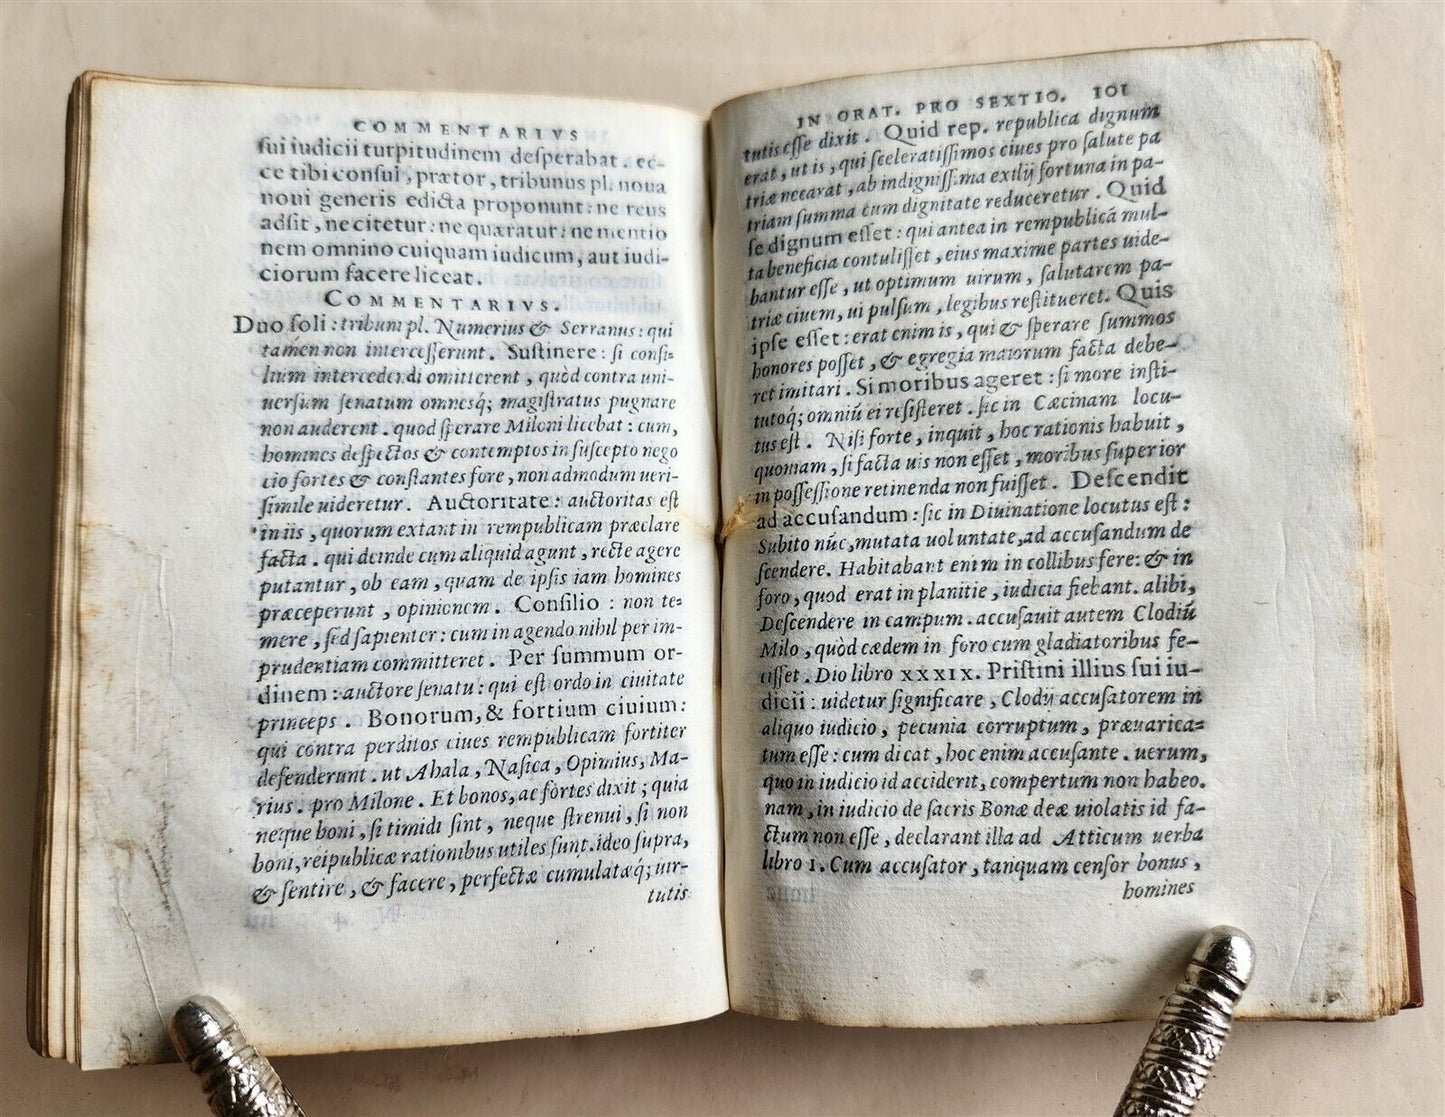 COMMENTARIVS
sui iudicii turpitudinem desperabat. ec-
ce tibi consul, prætor, tribunus pl. noua
noui generis edicta proponunt: ne reus
adsit, ne citetur: ne quæratur: ne mentio
nem omnino cuiquam iudicum, aut iudi-
ciorum facere liceat.
COMMENTARIVS.
Duo soli: tribuni pl. Numerius & Serranus: qui
tamen non intercesserunt. Sustinere: si consi-
lium intercedendi omitterent, quòd contra uni-
uersum senatum omnesq́; magistratus pugnare
non auderent. quod sperare Miloni licebat: cum,
homines despectos & contemptos in suscepto nego
cio fortes & constantes fore, non admodum ueri-
simile uideretur. Auctoritate: auctoritas est
in iis, quorum extant in rempublicam præclare
facta. qui deinde cum aliquid agunt, recte agere
putantur, ob eam, quam de ipsis iam homines
præceperunt, opinionem. Consilio: non te-
mere, sed sapienter: cum in agendo nihil per im-
prudentiam committeret. Per summum or-
dinem: auctore senatu: qui est ordo in ciuitate
princeps. Bonorum, & fortium ciuium:
qui contra perditos ciues rempublicam fortiter
defenderunt. ut Ahala, Nasica, Opimius, Ma-
rius. pro Milone. Et bonos, ac fòrtes dixit; quia
neque boni, si timidi sint, neque strenui, si non
boni, reipublicæ rationibus utiles sunt. ideo supra,
& sentire, & facere, perfectæ cumulatæq́; uir-
tutis
IN ORAT. PRO SEXTIO. 101
tutis esse dixit. Quid rep. republica dignum
erat, ut is, qui sceleratissimos ciues pro salute pa
triæ necarat, ab indignissima exilij fortuna in pa-
triam summa cum dignitate reduceretur. Quid
se dignum esset: qui antea in rempublicā mul-
ta beneficia contulisset, eius maxime partes uide-
bantur esse, ut optimum uirum, salutarem pa-
triæ ciuem, ui pulsum, legibus restitueret. Quis
ipse esset: erat enim is, qui & sperare summos
honores posset, & egregia maiorum facta debe-
ret imitari. Si moribus ageret: si more insti-
tutoq́; omniū ei resisteret. sic in Cæcinam locu-
tus est. Nisi forte, inquit, hoc rationis habuit,
quoniam, si facta uis non esset, moribus superior
in possessione retinenda non fuisset. Descendit
ad accusandum: sic in Diuinatione locutus est:
Subito nūc, mutata uoluntate, ad accusandum de
scendere. Habitabant enim in collibus fere: & in
foro, quod erat in planitie, iudicia fiebant. alibi,
Descendere in campum. accusauit autem Clodiū
Milo, quòd cædem in foro cum gladiatoribus fe-
cisset. Dio libro XXXIX. Pristini illius sui iu-
dicii: uidetur significare, Clodij accusatorem in
aliquo iudicio, pecunia corruptum, præuarica-
tum esse: cum dicat, hoc enim accusante. uerum,
quo in iudicio id acciderit, compertum non habeo.
nam, in iudicio de sacris Bonæ deæ uiolatis id fa-
ctum non esse, declarant illa ad Atticum uerba
libro I. Cum accusator, tanquam censor bonus,
homines